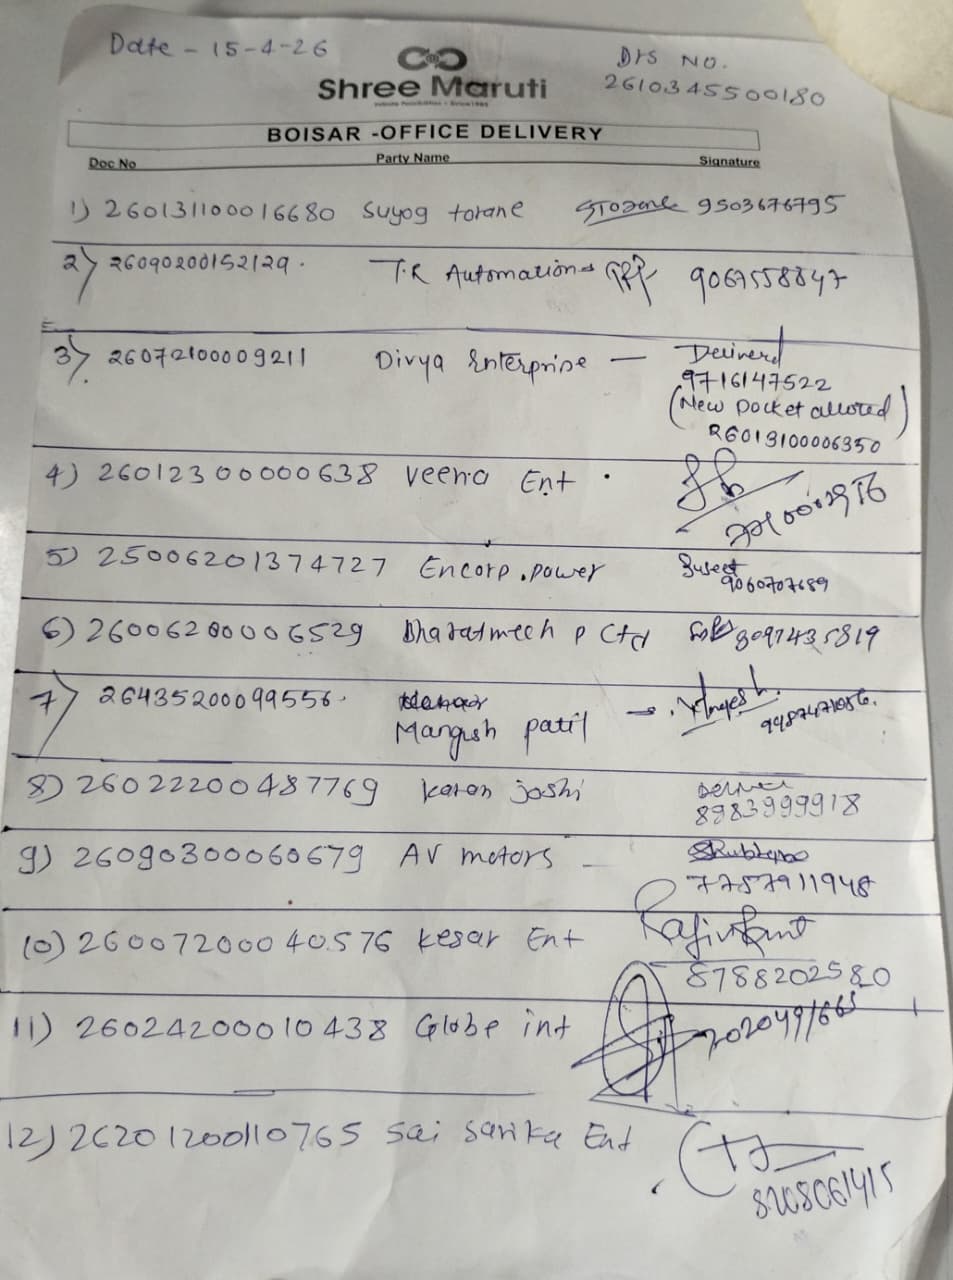 Date - 15-4-26
DIS NO.
2610345500180
Shree Maruti
BOISAR -OFFICE DELIVERY
Doc No Party Name Signature
1) 260131100016680 Suyog torane STorane 9503676795
2) 26090200152129. T.R Automation 9067558847
3) 26072100009211 Divya Enterprise — Deliverd
9716147522
(New Docket alloted)
26013100006350
4) 26012300000638 veena Ent.
5) 25006201374727 Encorp.power
9060707689
6) 26006200006529 Bharatmech P Ltd 8097435819
7) 26435200099556.
Mangesh patil
8) 26022200487769 karan joshi
8983999918
9) 26090300060679 AV motors -
7757911948
10) 26007200040576 kesar Ent
8788202580
11) 26024200010438 Globe int
12) 26201200110765 Sai Sarika Ent
8208061415